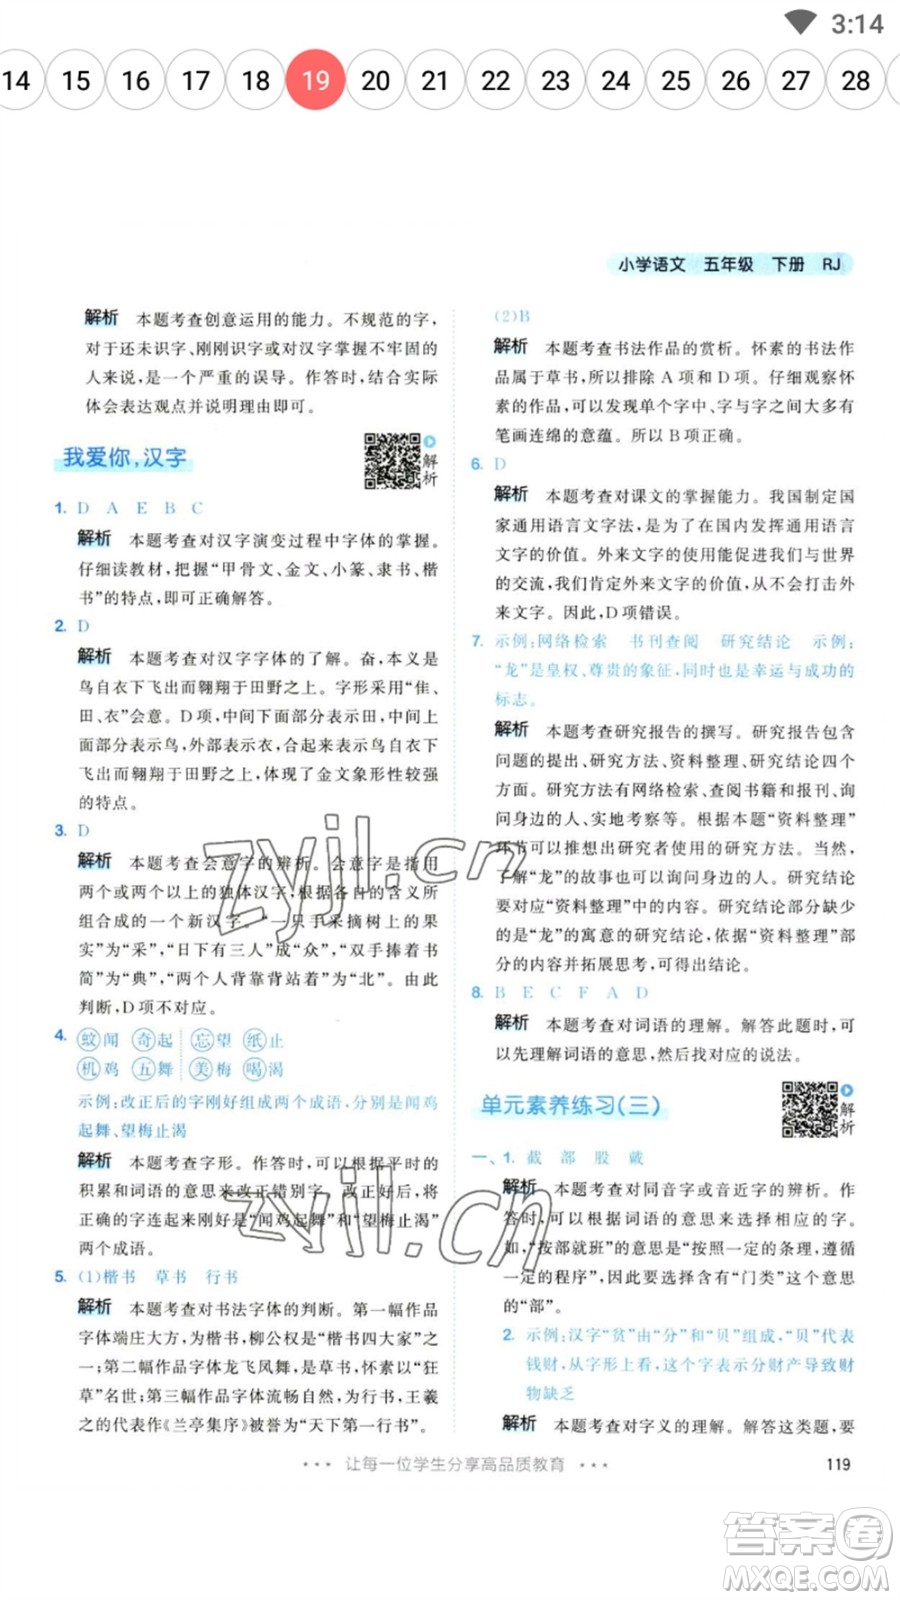 3:14
14 15 16 17 18 19 20 21 22 23 24 25 26 27 28
小学语文 五年级 下册 RJ
解析 本题考查创意运用的能力。不规范的字,
对于还未识字、刚刚识字或对汉字掌握不牢固的
人来说,是一个严重的误导。作答时,结合实际
体会表达观点并说明理由即可。
我爱你,汉字
解析
1. D A E B C
解析 本题考查对汉字演变过程中字体的掌握。
仔细读教材,把握“甲骨文、金文、小篆、隶书、楷
书”的特点,即可正确解答。
2. D
解析 本题考查对汉字字体的了解。奋,本义是
鸟自衣下飞出而翱翔于田野之上。字形采用“隹、
田、衣”会意。D项,中间下面部分表示田,中间上
面部分表示鸟,外部表示衣,合起来表示鸟从衣下
飞出而翱翔于田野之上,体现了金文象形性较强
的特点。
3. D
解析 本题考查会意字的辨析。会意字是指用
两个或两个以上的独体汉字,根据各自的含义所
组合成的一个新汉字。“一只手采摘树上的果
实”为“采”,“日下有三人”成“众”,“双手捧着书
简”为“典”,“两个人背靠背站着”为“北”。由此
判断,D项不对应。
4. 蚊闻 奇起 忘望 纸止
机鸡 五舞 美梅 喝渴
示例:改正后的字刚好组成两个成语,分别是闻鸡
起舞、望梅止渴
解析 本题考查字形。作答时,可以根据平时的
积累和词语的意思来改正错别字。改正后,将改
正的字连起来刚好是“闻鸡起舞”和“望梅止渴”
两个成语。
5. (1)楷书 草书 行书
解析 本题考查对书法字体的判断。第一幅作品
字体端庄大方,为楷书,柳公权是“楷书四大家”之
一;第二幅作品字体龙飞凤舞,是草书,怀素以“狂
草”名世;第三幅作品字体流畅自然,为行书,王羲
之的代表作《兰亭集序》被誉为“天下第一行书”。
(2)B
解析 本题考查书法作品的赏析。怀素的书法作
品属于草书,所以排除A项和D项。仔细观察怀
素的作品,可以发现单个字中、字与字之间大多有
笔画连绵的意蕴。所以B项正确。
6. D
解析 本题考查对课文的掌握能力。我国制定国
家通用语言文字法,是为了在国内发挥通用语言
文字的价值。外来文字的使用能促进我们与世界
的交流,我们肯定外来文字的价值,从不打击外
来文字。因此,D项错误。
7. 示例:网络检索 书刊查阅 研究结论 示例:
“龙”是皇权、尊贵的象征,同时也是幸运与成功的
标志。
解析 本题考查研究报告的撰写。研究报告包含
问题的提出、研究方法、资料整理、研究结论四个
方面。研究方法有网络检索、查阅书籍和报刊、询
问身边的人、实地考察等。根据本题“资料整理”
环节可以推断出研究者使用的研究方法。当然,
了解“龙”的故事也可以询问身边的人。研究结论
要对应“资料整理”中的内容。研究结论部分缺少
的是“龙”的寓意的研究结论,依据“资料整理”部
分的内容并拓展思考,可得出结论。
8. B E C F A D
解析 本题考查对词语的理解。解答此题时,可
以先理解词语的意思,然后找出对应的说法。
单元素养练习(三)
解析
一、1. 截 部 股 戴
解析 本题考查对同音字或音近字的辨析。作
答时,可以根据词语的意思来选择相应的字。
如,“按部就班”的意思是“按照一定的条理,遵循
一定的程序”,因此要选择含有“门类”这个意思
的“部”。
2. 示例:汉字“贫”由“分”和“贝”组成,“贝”代表
钱财,从字形上看,这个字表示分财产导致财
物缺乏
解析 本题考查对字义的理解。解答这类题,要
··· 让每一位学生分享高品质教育 ···
119
zyjl.cn
zyjl.cn
答案圈
MXQE.COM